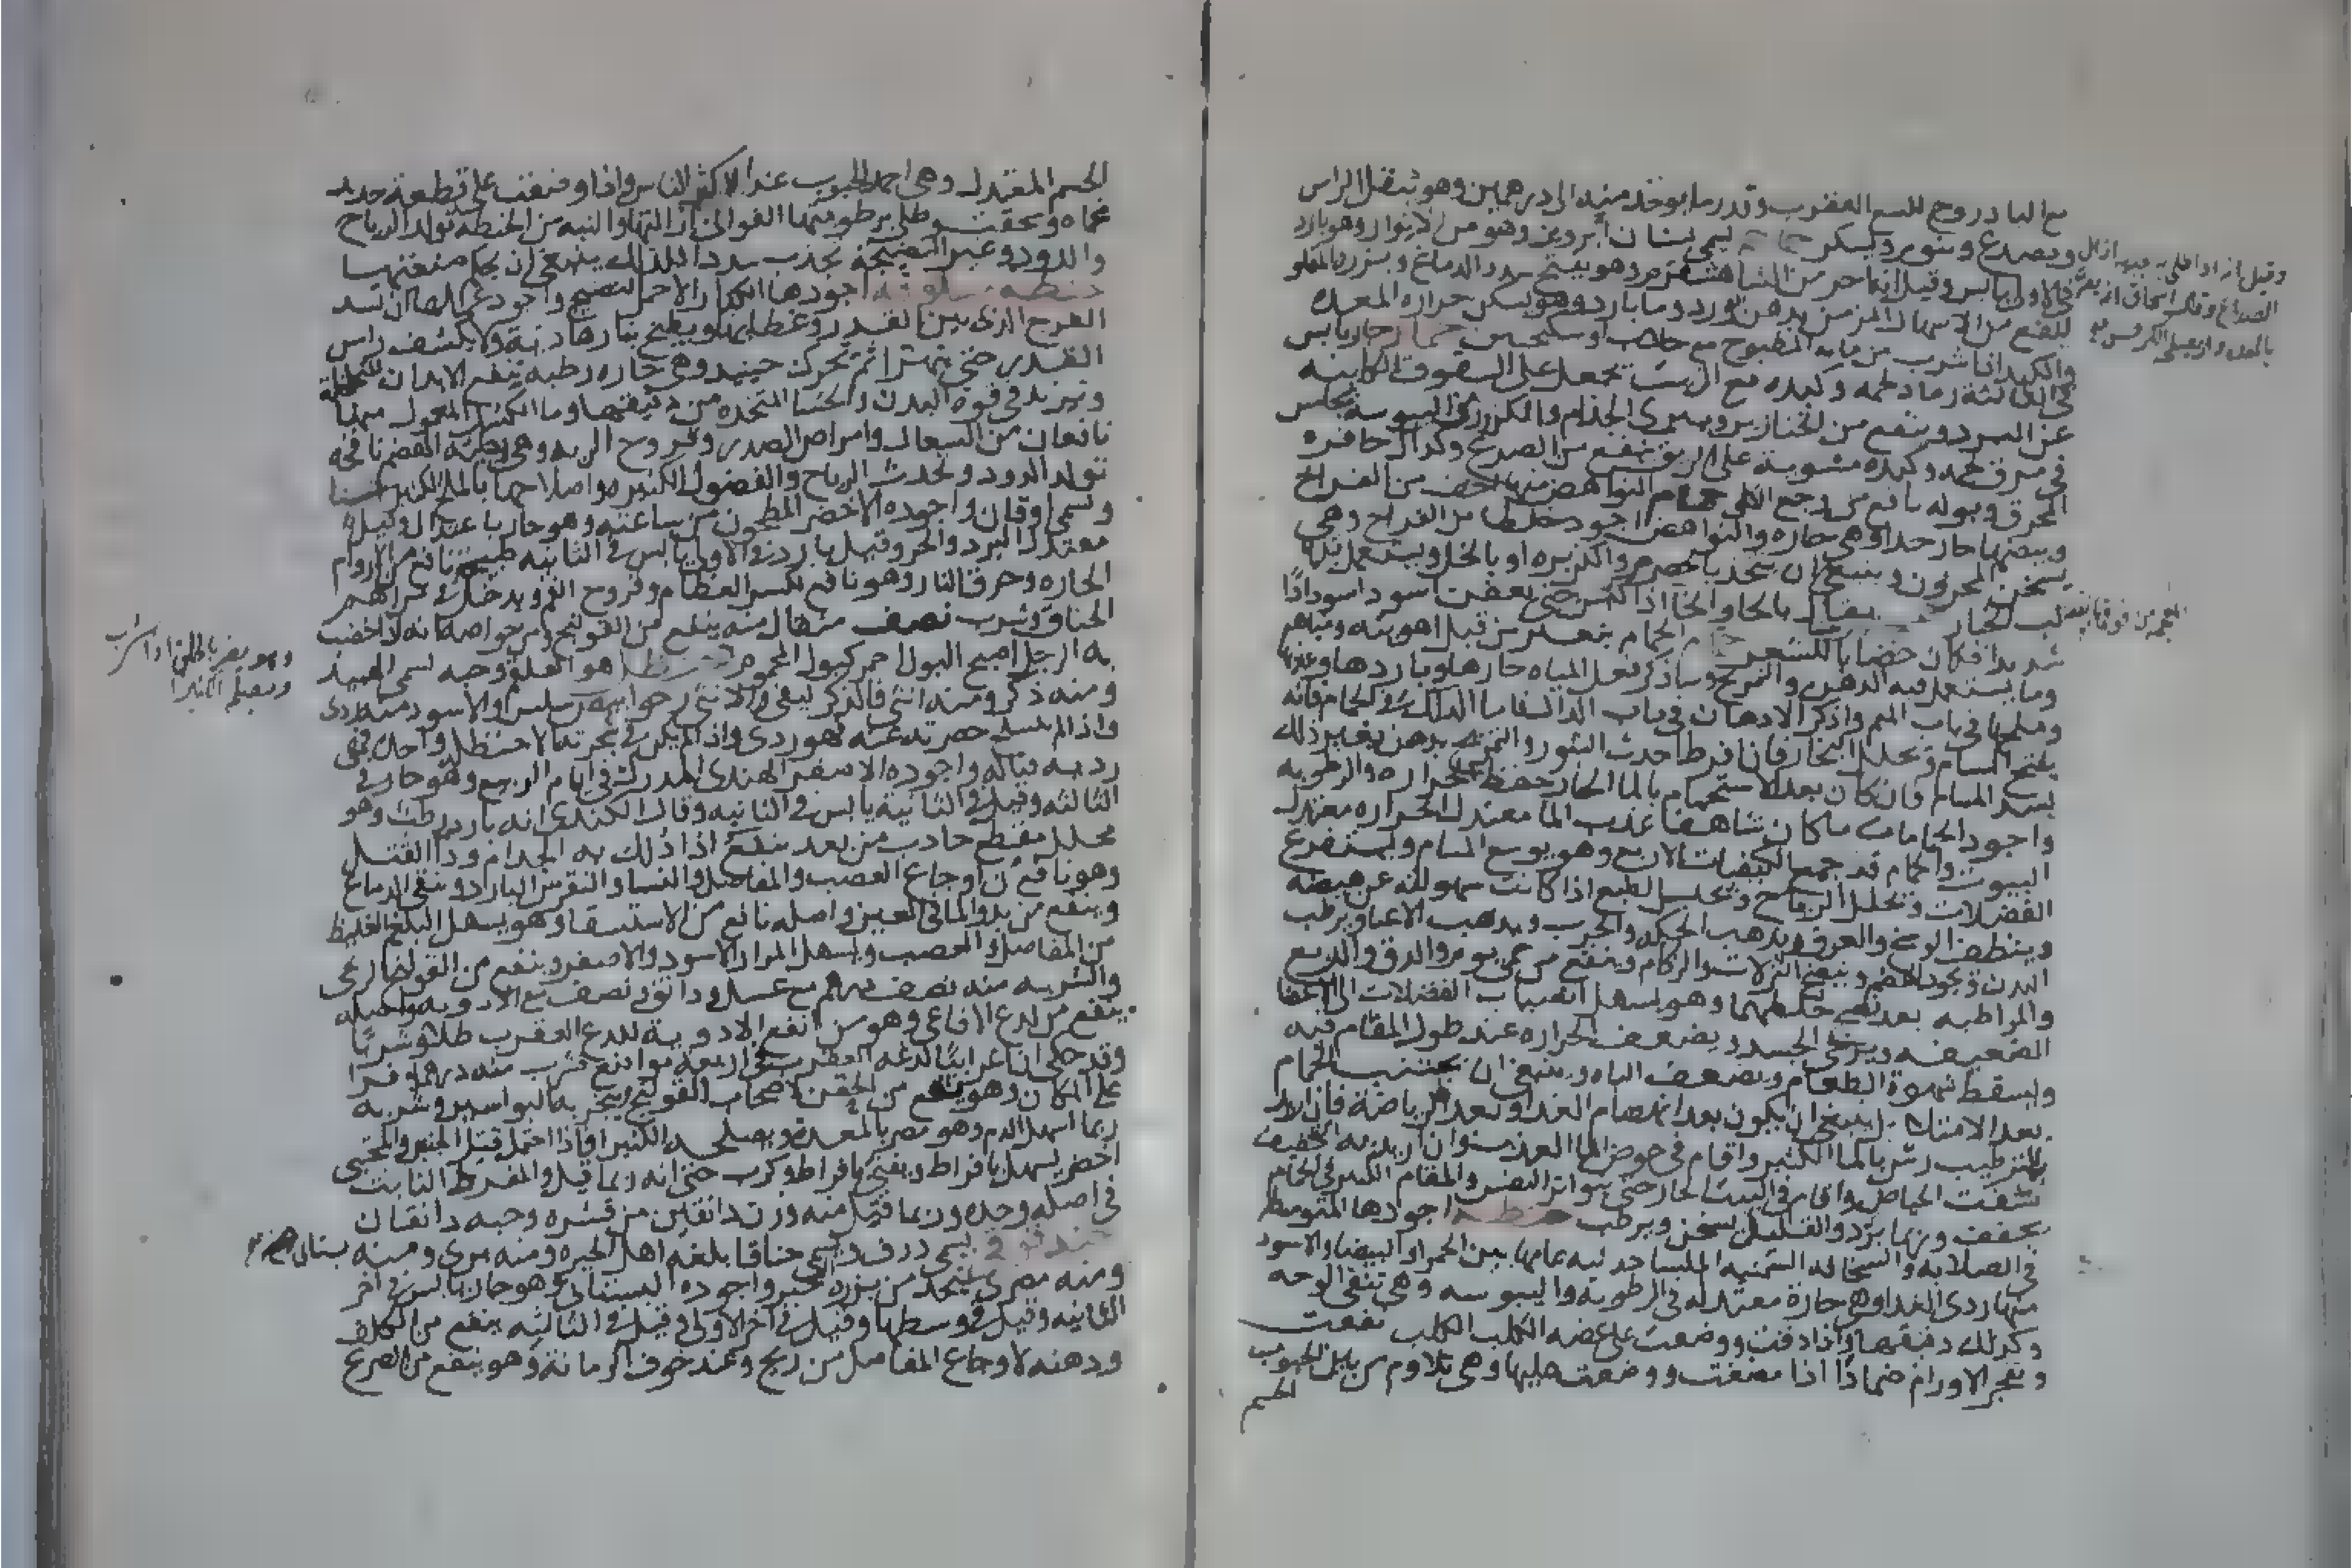 مع البادروج للسع العقرب وقدر ما يوخذ منه الى درهمين وهو يثقل الراس
ويصدع وينوم ويسكر يسمى بستان ابروز وهو من الانوار وهو بارد
في الاولى يابس وقيل انه احر من الشاهسفرم وهو يفتح سدد الدماغ وبزره المقلو
ينفع من الاسهال المزمن بدهن ورد وما بارد وهو يسكن حرارة المعده
والكبد اذا شرب من مايه المطبوخ مع جلاب او سكنجبين حمار حار يابس
في الثالثة رماد لحمه وكبده مع الزيت يجعل على الشقوق الكاينه
عن البرد وينفع من الخنازير ويبرى الجذام والكزاز في اليبوسه يجلس
في مرق لحمه وكبده مشوية على الريق ينفع من الصرع وكذلك حافره
المحرق وبوله نافع من وجع الكلى حمام النواهض منها اخف من الفراخ
وبيضها حار جدا وهي حاره والنواهض اجود خلطا من الفراخ وهي
تسخن المحرورين وينبغي ان تتخذ بالحصرم والكزبره او بالخل ويستعمل بعدها
لب الخيار يقال بالحا والخا اذا كبس حتى يعفن اسود اسودادًا
شديدا فكان خضابا للشعر حمام الحمام ينفعل من قبل اهويته ومياهه
وما يستعمل فيه الدهن والتمريخ وساذكر فعل المياه حارها وباردها وعذبها
وملحها في باب الميم واذكر الادهان في باب الدال فاما الدلك في الحمام فانه
يفتح المسام ويحلل البخار فان افرط احدث البثور والتمريخ بدهن بغير ذلك
يسد المسام فان كان بعد الاستحمام بالما الحار حفظ الحراره والرطوبه
واجود الحمامات ما كان شاهقا عذب الما معتدل الحراره معتدل
البيوت والحمام قد جمع الكيفيات الاربع وهو يوسع المسام ويستفرغ
الفضلات ويحلل الرياح ويحبس الطبع اذا كانت سهولته عن هيضه
وينظف الوسخ والعرق ويذهب الحكه والجرب ويذهب الاعيا ويرطب
البدن ويجود الهضم وينضج النزلات والزكام وينفع من حمى يوم والدق والربع
والمواظبه بعد نضج خلطهما وهو يسهل انصباب الفضلات الى الاعضا
الضعيفه ويرخى الجسد ويضعف الحراره عند طول المقام فيه
ويسقط شهوة الطعام ويضعف الباه وينبغي ان يجتنب الحمام
بعد الامتلا بل ينبغي ان يكون بعد انهضام الغذا وبعد الرياضة فان اريد
الترطيب رش بالما الكثير واقام في حوض الما العذب وان اريد به التخفيف
نشفت الحياض واقام في البيت الحار حتى يتواتر النفس والمقام الكثير في الحمام
يجفف وربما برد والقليل يسخن ويرطب حنطه اجودها المتوسط
في الصلابه والسخافه السمينه الملسا حديثه عامها بين الحمرا والبيضا والاسود
منها ردى الغذا وهي حارة معتدله في الرطوبه واليبوسه وهي تنقى الوجه
وكذلك دقيقها واذا دقت ووضعت على عضه الكلب الكلب نفعت
وتفجر الاورام ضمادًا اذا مضغت ووضعت عليها وهي تلاوم من بين الحبوب
الجسم
وقيل انه اذا طلي به
الصداع وقال اسحاق انه يضر
بالمعده
الجسم المعتدل وهي احمد الحبوب عند الاكثر الناس واذا وضعت على قطعة حديد
محماه وسحقت وطلى برطوبتها القوابى ازالتها والنيه من الحنطه تولد الرياح
والدود وغير النضيجة تجذب سددا لذلك ينبغي ان يحكم صنعتها
حنطه مسلوقه اجودها الكبار الاحمر النضيج واجود عملها ان تسد
الفرج الذى بين القدر وغطايها ويطبخ بنار هادية ولا يكشف راس
القدر حتى يتهرا ثم تحرك حينيذ وهي حاره رطبه تنفع الابدان المتخلخلة
وتزيد في قوة البدن والحسا المتخذه من دقيقها وما الكشك المعمول منها
نافعان من السعال وامراض الصدر وقروح الريه وهي بطيئه الهضم نافخه
تولد الدود وتحدث الرياح والفضول الكثيره واصلاحها بالملح الكثير حنا
وتسمى اوقان واجوده الاخضر المطحون من ساعته وهو حار باعتدال وقيل
معتدل البرد والحر وقيل بارد في الاولى يابس في الثانيه طبيخه نافع من الاورام
الحاره وحرق النار وهو نافع لكسر العظام وقروح الفم ويدخل في مراهم
الخناق وشرب نصف مثقال منه ينفع من القولنج ومن خواصه انه اذا خضب
به الرجل اصبح البول احمر كبول المحموم حنظل هو العلقم وحبه تسمى الهبيد
ومنه ذكر ومنه انثى فالذكر ليفي والانثى رخو ابيض سلس والاسود منه ردى
واذا لم تنسلخ خضرته عنه فهو ردى واذا لم يكن في شجرته الا حنظله واحده فهي
رديه قتاله واجوده الاصفر الهندى المدرك في ايام الربيع وهو حار في
الثالثه وقيل في الثانية يابس في الثانيه وقال الكندى انه بارد رطب وهو
محلل مقطع جاذب من بعد ينفع اذا دلك به الجذام وداء الفيل
وهو نافع من اوجاع العصب والمفاصل والنسا والنقرس البارد وينقي الدماغ
وينفع من بدو الما في العين واصله نافع من الاستسقا وهو يسهل البلغم الغليظ
من المفاصل والعصب ويسهل المرار الاسود والاصفر وينفع من القولنج الريحي
والشربه منه نصف درهم مع عسل ودانق ونصف مع الادويه واصله
ينفع من لدغ الافاعي وهو من انفع الادوية للدغ العقرب طلاوً وشربًا
وقد حكي ان اعرابيًا لدغه العقرب في اربعة مواضع فشرب منه درهما فبرا
على المكان وهو ينفع من الحقن لاصحاب القولنج ويتبخر به البواسير وشربه
ربما اسهل الدم وهو مضر بالمعده ويصلحه الكثيرا واذا احتمل قتل الجنين والمجتنى
اخضر يسهل بافراط ويقيى بافراط وكرب حتى انه ربما قتل والمفرط النابت
في اصله وحده وربما قتل منه وزن دانقين من قشره وحبه دانقان
حندقوقى يسمى ذرق ويسمى حباقا بلغه اهل الحيره ومنه برى ومنه بستاني
ومنه مصرى يتخذ من بزره خبز واجوده البستاني وهو حار يابس في اخر
الثانيه وقيل في وسطها وقيل في اخر الاولى وقيل في الثالثه ينفع من الكلف
ودهنه لاوجاع المفاصل من ريح وعند خوف الزمانة وهو ينفع من الصرع
وهو يضر
ويصلحه الكثيرا